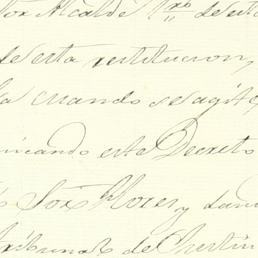 Alcalde 1ro de esta
de esta restitucion,
cuando se agite
icando este Decreto
Sox Flores, y
Tribunal de Justic